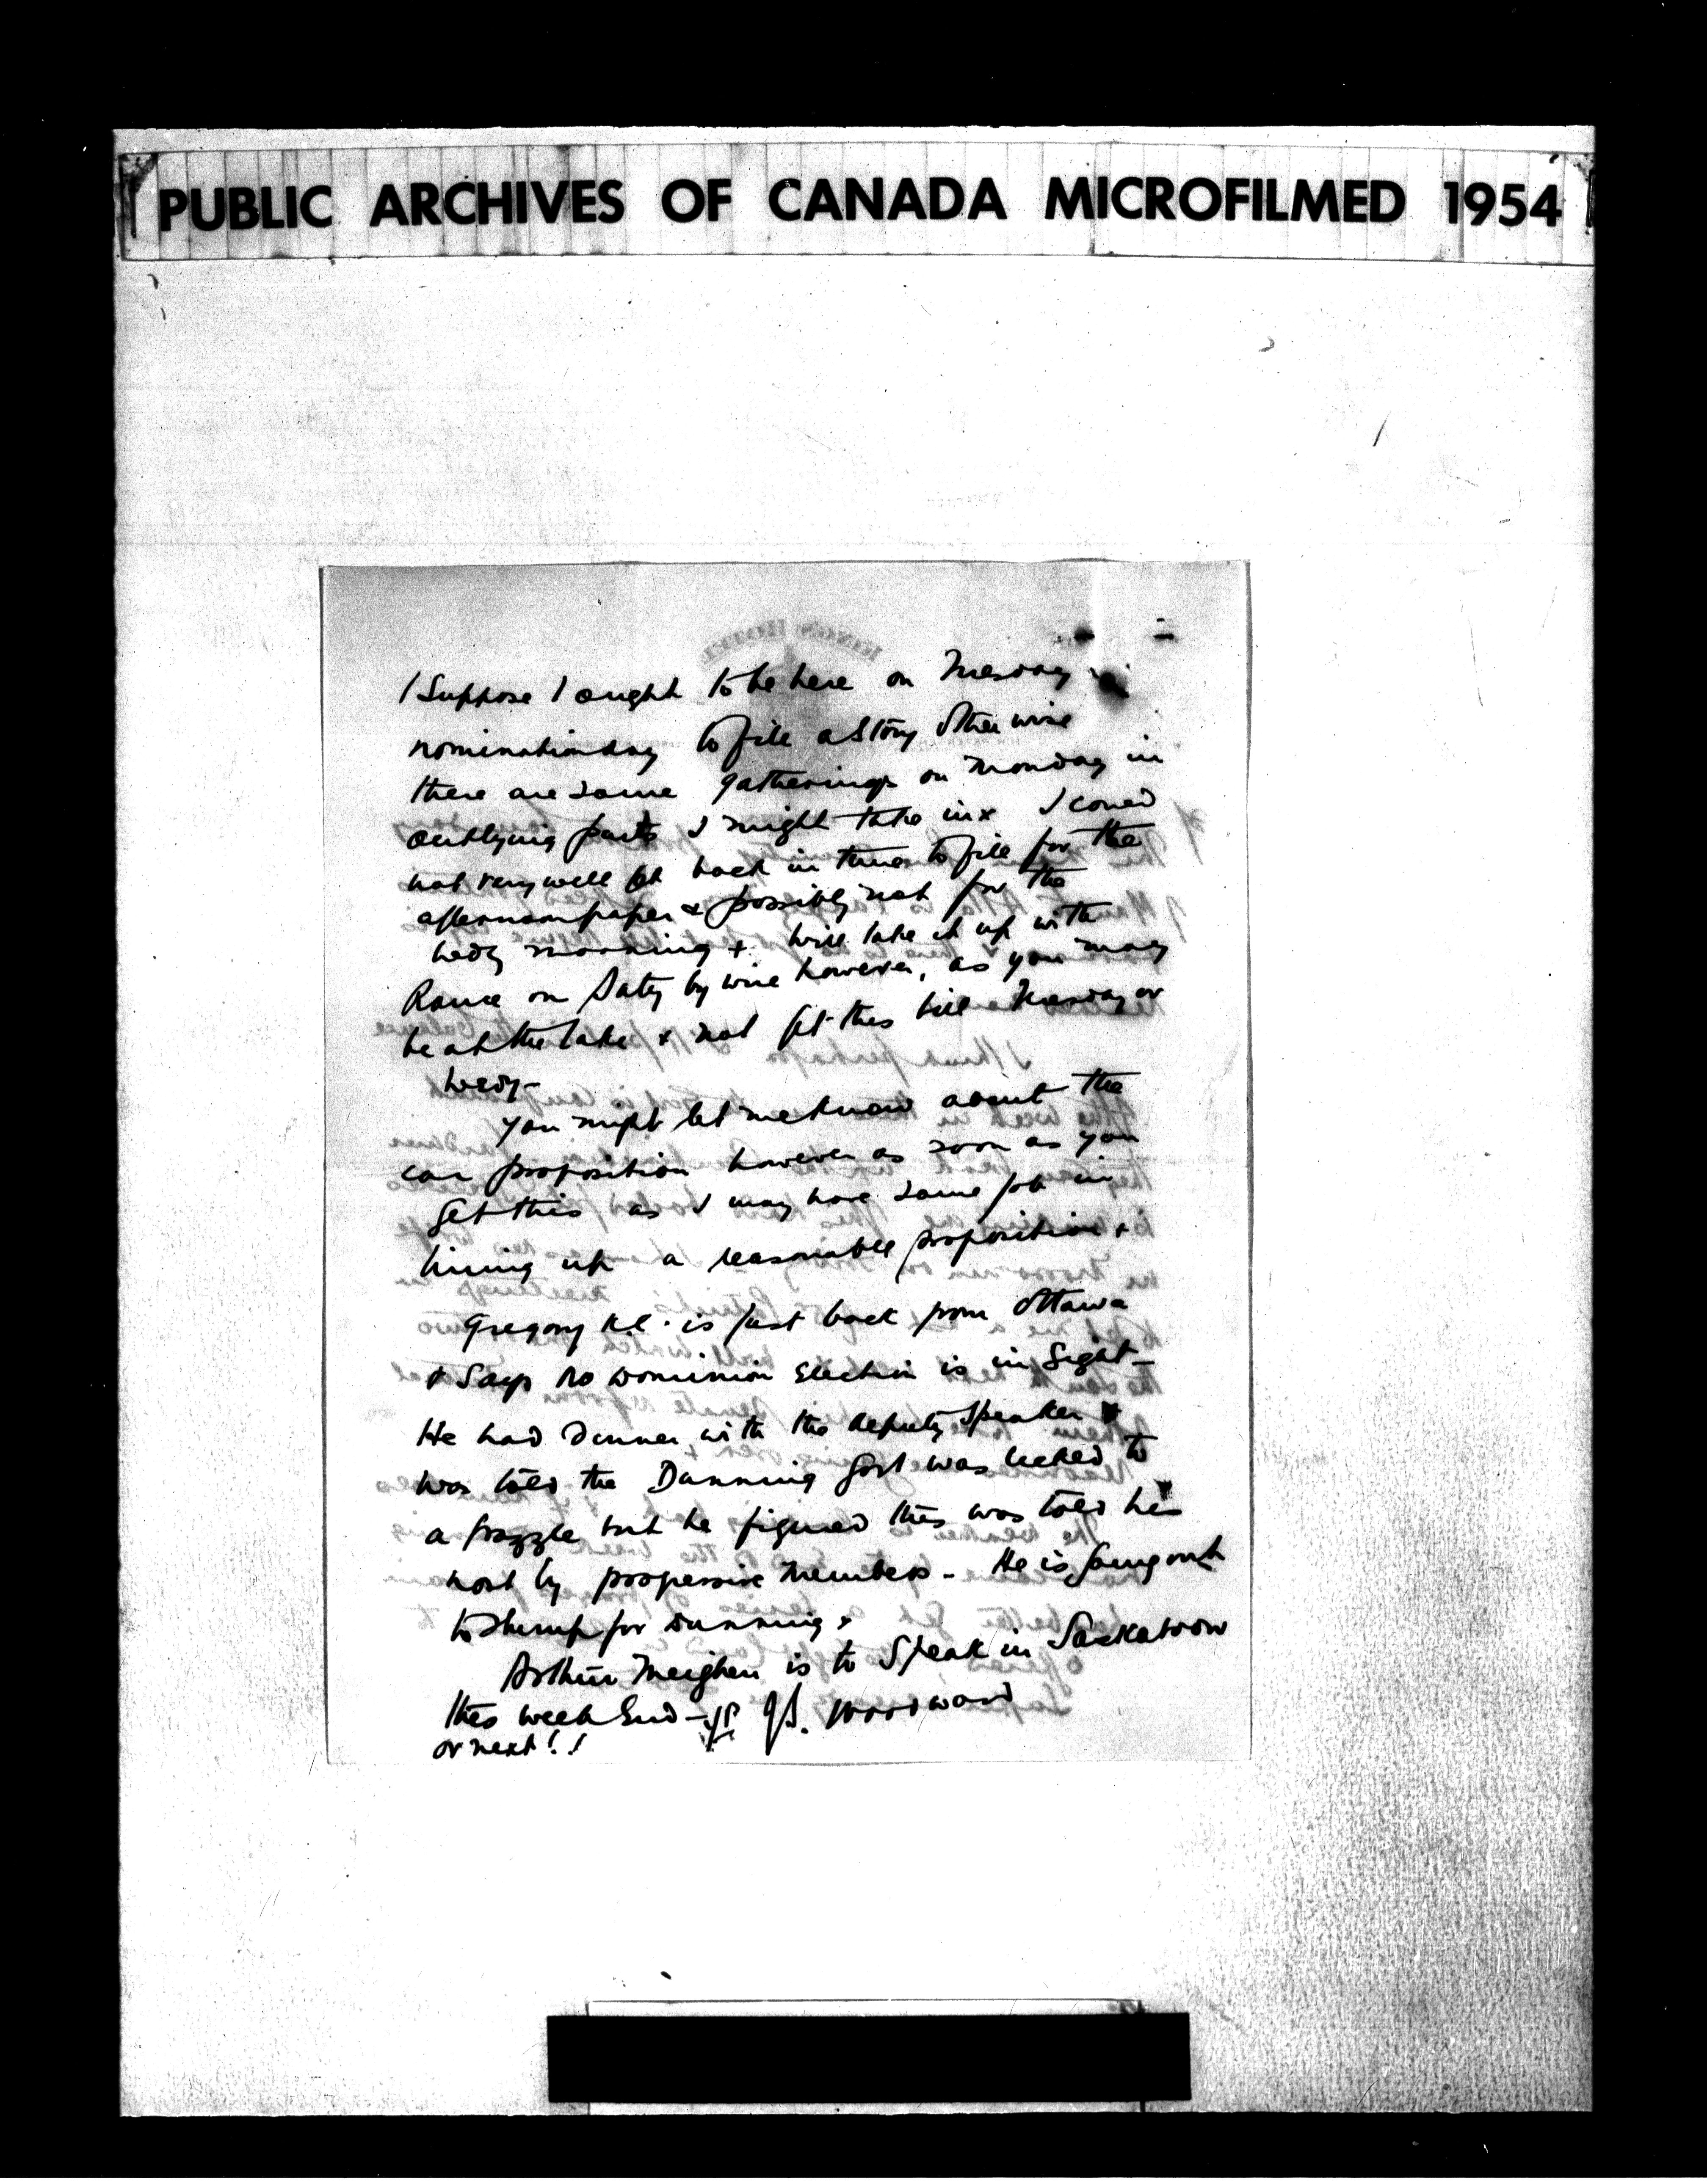 PUBLIC ARCHIVES OF CANADA MICROFILMED 1954
KING'S HOTEL
I suppose I ought to be here on Tuesday
nomination day to file a story otherwise
there are some gatherings on Monday in
outlying parts I might take in x I could
not very well get back in time to file for the
afternoon paper & possibly not for the
Wedy morning + will take it up with
on Saty by wire however, as you may
be at the lake & not get this till Tuesday or
Wedy -
You might let me know about the
car proposition however as soon as you
get this as I may have some job in
lining up a reasonable proposition +
Gregory K.C. is just back from Ottawa
& says no Dominion Election is in sight -
He had dinner with the deputy speaker &
was told the Dunning Govt was licked to
a frazzle but he figured this was told his
host by progressive members - He is going out
to stump for Dunning x
Arthur Meighen is to speak in Saskatoon
this week End - JB. Woodward
or next!!